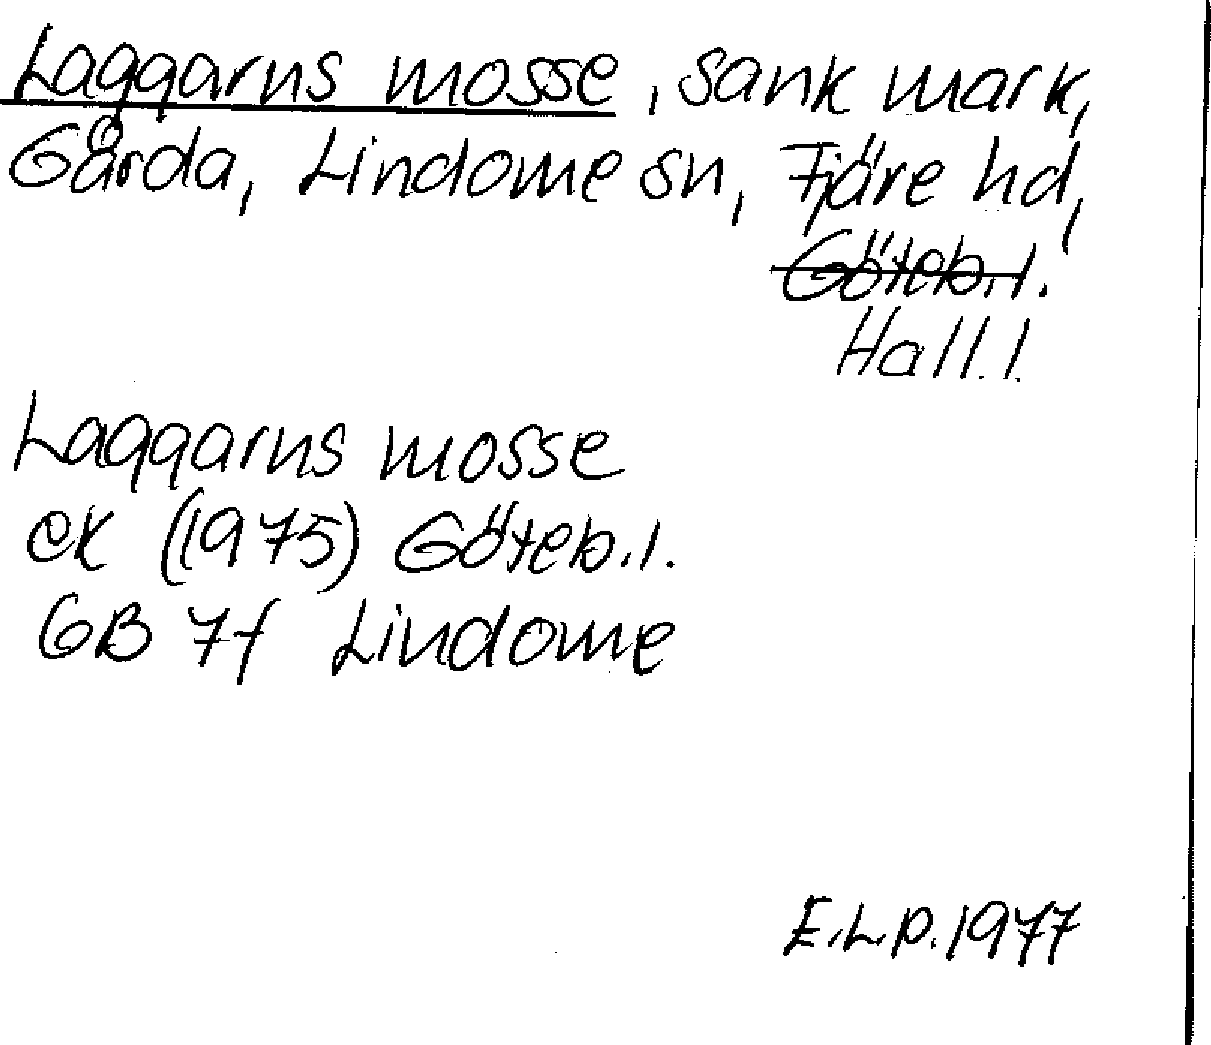 Laggarns mosse, sank mark,
Gårda, Lindome sn, Fjäre hd,
Göteb.l.
Hall.l.
Laggarns mosse
ek (1975) Göteb.l.
GB 7f Lindome
E.L.P. 1977